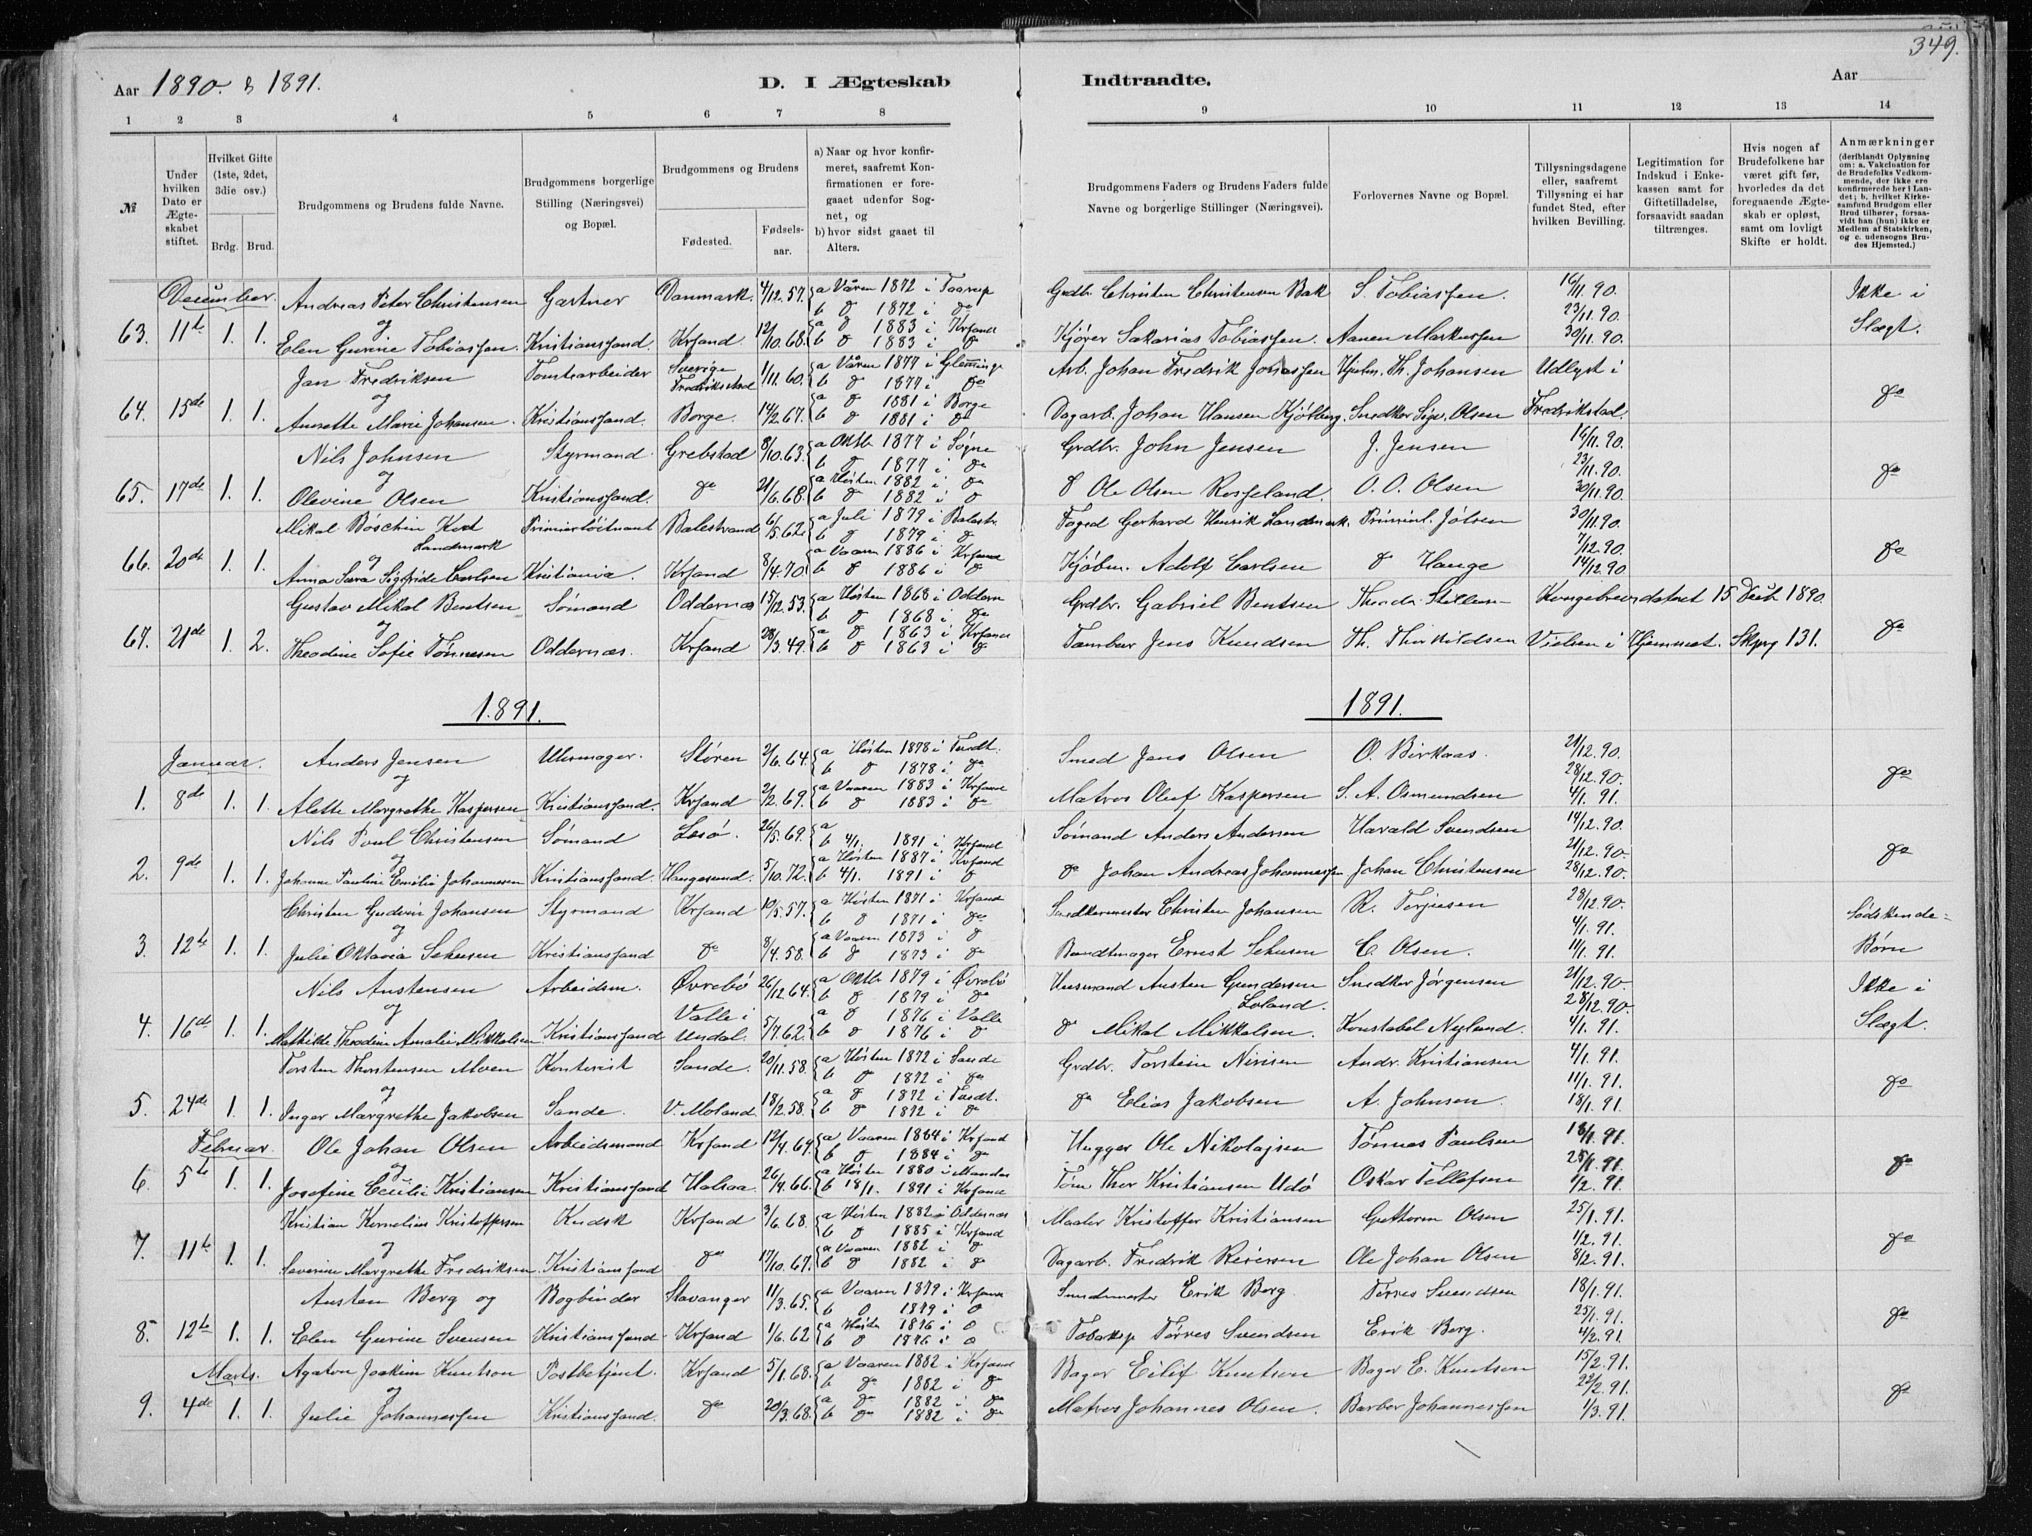 349.
Aar 1890. & 1891.
D. I Ægteskab Indtraadte.
Aar
1 2 3 4 5 6 7 8 9 10 11 12 13 14
№
Under hvilken Dato er Ægteskabet stiftet.
Hvilket Gifte (1ste, 2det, 3die osv.)
Brdg. Brud.
Brudgommens og Brudens fulde Navne.
Brudgommens borgerlige Stilling (Næringsvei) og Bopæl.
Brudgommens og Brudens
Fødested. Fødselsaar.
a) Naar og hvor konfirmeret, saafremt Konfirmationen er foregaaet udenfor Sognet, og
b) hvor sidst gaaet til Alters.
Brudgommens Faders og Brudens Faders fulde Navne og borgerlige Stillinger (Næringsvei).
Forlovernes Navne og Bopæl.
Tillysningsdagene eller, saafremt Tillysning ei har fundet Sted, efter hvilken Bevilling.
Legitimation for Indskud i Enkekassen samt for Giftetilladelse, forsaavidt saadan tiltrænges.
Hvis nogen af Brudefolkene har været gift før, hvorledes da det foregaaende Ægteskab er opløst, samt om lovligt Skifte er holdt.
Anmærkninger
(deriblandt Oplysning om: a. Vakcination for de Brudefolks Vedkommende, der ikke ere konfirmerede her i Landet; b. hvilket Kirkesamfund Brudgom eller Brud tilhører, forsaavidt han (hun) ikke er Medlem af Statskirken, og c. udensogns Brudes Hjemsted.)
December. Andreas Peter Christensen Gartner Danmark. 4/12.57. a Våren 1872 i Taarup Grdbr. Christen Christensen Bak S. Tobiassen. 16/11.90. Ikke i
og b do 1872 i do 23/11.90.
63. 11te 1. 1. Elen Gurine Tobiassen. Kristianssand. Krsand 12/10.68. a do 1883 i Krsand b do 1883 i do Kjører Sakarias Tobiassen. Aanen Markussen 30/11.90. Slægt.
Jan Fredriksen Tomtearbeider Sverige Fredrikstad 1/11.60. a Våren 1877 i Glemminge b do 1877 i do Arb. Johan Fredrik Johiassen Hjulm. Th. Johansen Udlyst i
og do
64. 15de 1. 1. Annette Marie Johansen. Kristianssand. Borge. 14/2.67. a do 1881 i Borge b do 1881 i do Dagarb. Johan Hansen Kjölberg. Snedker Sigv. Olsen Fredrikstad.
Nils Johnsen Styrmand Grebstad 8/10.63. a Oktb. 1877 i Søgne b do 1877 i do Grdbr. John Jensen J. Jensen 16/11.90.
og 23/11.90. do
65. 17de 1. 1. Olevine Olsen Kristianssand. do 21/6.68. a Høsten 1882 i do b do 1882 i do do Ole Olsen Rosseland. O. O. Olsen 30/11.90.
Mikal Boschen Kvd Landmark Primiærløitnant Balestrand 6/5.62. a Juli 1879 i Balestr. b do 1879 i do Foged Gerhard Henrik Landmark. Priminl. Jølsen 30/11.90.
og 7/12.90. do
66. 20de 1. 1. Anna Sara Sigfride Carlsen Kristiania. Krsand 8/4.70. a Vaaren 1886 i Krsand b do 1886 i do Kjøbm. Adolf Carlsen do Hauge 14/12.90
Gustav Mikal Bentsen Sømand Oddernæs 15/12.53. a Høsten 1868 i Oddern b do 1868 i do Grdbr. Gabriel Bentsen Kongebrev datert 15 Decb 1890.
og do
67. 21de 1. 2. Theodine Sofie Tønnesen Oddernæs. Krsand 28/3.49. a do 1863 i Krsand b do 1863 i do Tambur Jens Knudsen Th. Thorkildsen Vielsen i Hjemmet. Skprg 131.
1891. 1891.
Januar. Anders Jensen Uhrmager. Støren 21/6.64. a Høsten 1878 i Trndt. b do 1878 i do Smed Jens Olsen O. Birkaas. 21/12.90.
og 28/12.90. do
1. 8de 1. 1. Alette Margrethe Kaspersen Kristianssand. Krsand 2/12.69. a Vaaren 1883 i Krsand b do 1883 i do Matros Oluf Kaspersen S. A. Osmundsen 4/1.91.
Nils Poul Christensen Sømand Læsø. 26/5.69. a b 4/1. 1891 i Krsand Sømand Anders Andersen Harald Svendsen 14/12.90.
og 21/12.90. do
2. 9de 1. 1. Johanne Pauline Emilie Johannessen Kristianssand. Haugesund. 5/10.72. a Høsten 1887 i Krsand b 4/1. 1891 i do do Johan Andreas Johannessen Johan Christensen 28/12.90.
Christen Guderin Johansen Styrmand Krsand 10/5.57. a Høsten 1871 i Krsand b do 1871 i do Snedkermester Christen Johansen R. Terjesen 28/12.90. Sødskende-
og 4/1.91.
3. 12te 1. 1. Julie Oktavia Sehusen Kristianssand do 8/4.58. a Vaaren 1873 i do b do 1873 i do Bundtmager Ernest Sehusen C. Olsen. 11/1.91. Børn
Nils Austensen Arbeidsm. Øvrebø 26/12.64. a Oktb. 1879 i Øvrebø b do 1879 i do Husmand Austen Gundersen Loland. Snedker Jørgensen 21/12.90. Ikke i
og 28/12.90.
4. 16de 1. 1. Mathilde Theodine Amalie Mikkelsen Kristianssand Valle i Undal. 5/7.62. a do 1876 i Valle b do 1876 i do do Mikal Mikkelsen. Konstabel Nylund. 4/1.91. Slægt.
Torsten Thorstensen Moen Kontorist Sande. 20/11.58. a Høsten 1872 i Sande b do 1872 i do Grdbr. Torstein Nirisen Andr. Kristiansen 4/1.91.
og 11/1.91. do
5. 24de 1. 1. Inger Margrethe Jakobsen Sande. V. Moland 18/2.58. a do 1872 i Tvedt. b do 1872 i do do Elias Jakobsen A. Johnsen. 18/1.91.
Februar. Ole Johan Olsen Arbeidsmand Krsand 12/4.64. a Vaaren 1884 i Krsand b do 1884 i do Hugger Ole Nikolajsen Tønnes Paulsen 18/1.91.
og 25/1.91. do
6. 5te 1. 1. Josefine Cecilie Kristiansen Kristianssand Halsaa. 26/4.66. a Høsten 1880 i Mandal b 18/1. 1891 i Krsand Tøm Thor Kristiansen Udö Oskar Tellefsen 1/2.91.
Kristian Kornelius Kristoffersen Kudsk Krsand 3/6.68. a Høsten 1882 i Oddernæs b do 1885 i Krsand Maaler Kristoffer Kristiansen Guthorm Olsen 25/1.91.
og 1/2.91. do
7. 11te 1. 1. Severine Margrethe Fredriksen Kristianssand do 17/10.67. a Vaaren 1882 i do b do 1882 i do Dagarb. Fredrik Reiersen Ole Johan Olsen 8/2.91.
Austen Berg og Bogbinder Stavanger 11/3.65. a Vaaren 1879 i Krsand b do 1879 i do Erik Berg Torres Svendsen 18/1.91.
25/1.91. do
8. 12te 1. 1. Elen Gurine Svensen Kristianssand. Krsand 1/6.62 a Høsten 1876 i do b do 1876 i do Tobaksp Torres Svendsen Erik Berg. 4/2.91.
Marts. Agaton Joakim Knutson Postbetjent. Krsand 5/1.68. a Vaaren 1882 i Krsand b do 1882 i do Bager Eilif Knutson Bager E. Knutson 15/2.91.
og 22/2.91. do
9. 4de 1. 1. Julie Johannessen Kristianssand. do 20/3.68. a do 1882 i do b do 1882 i do Matros Johannes Olsen. Barber Johannessen 1/3.91.